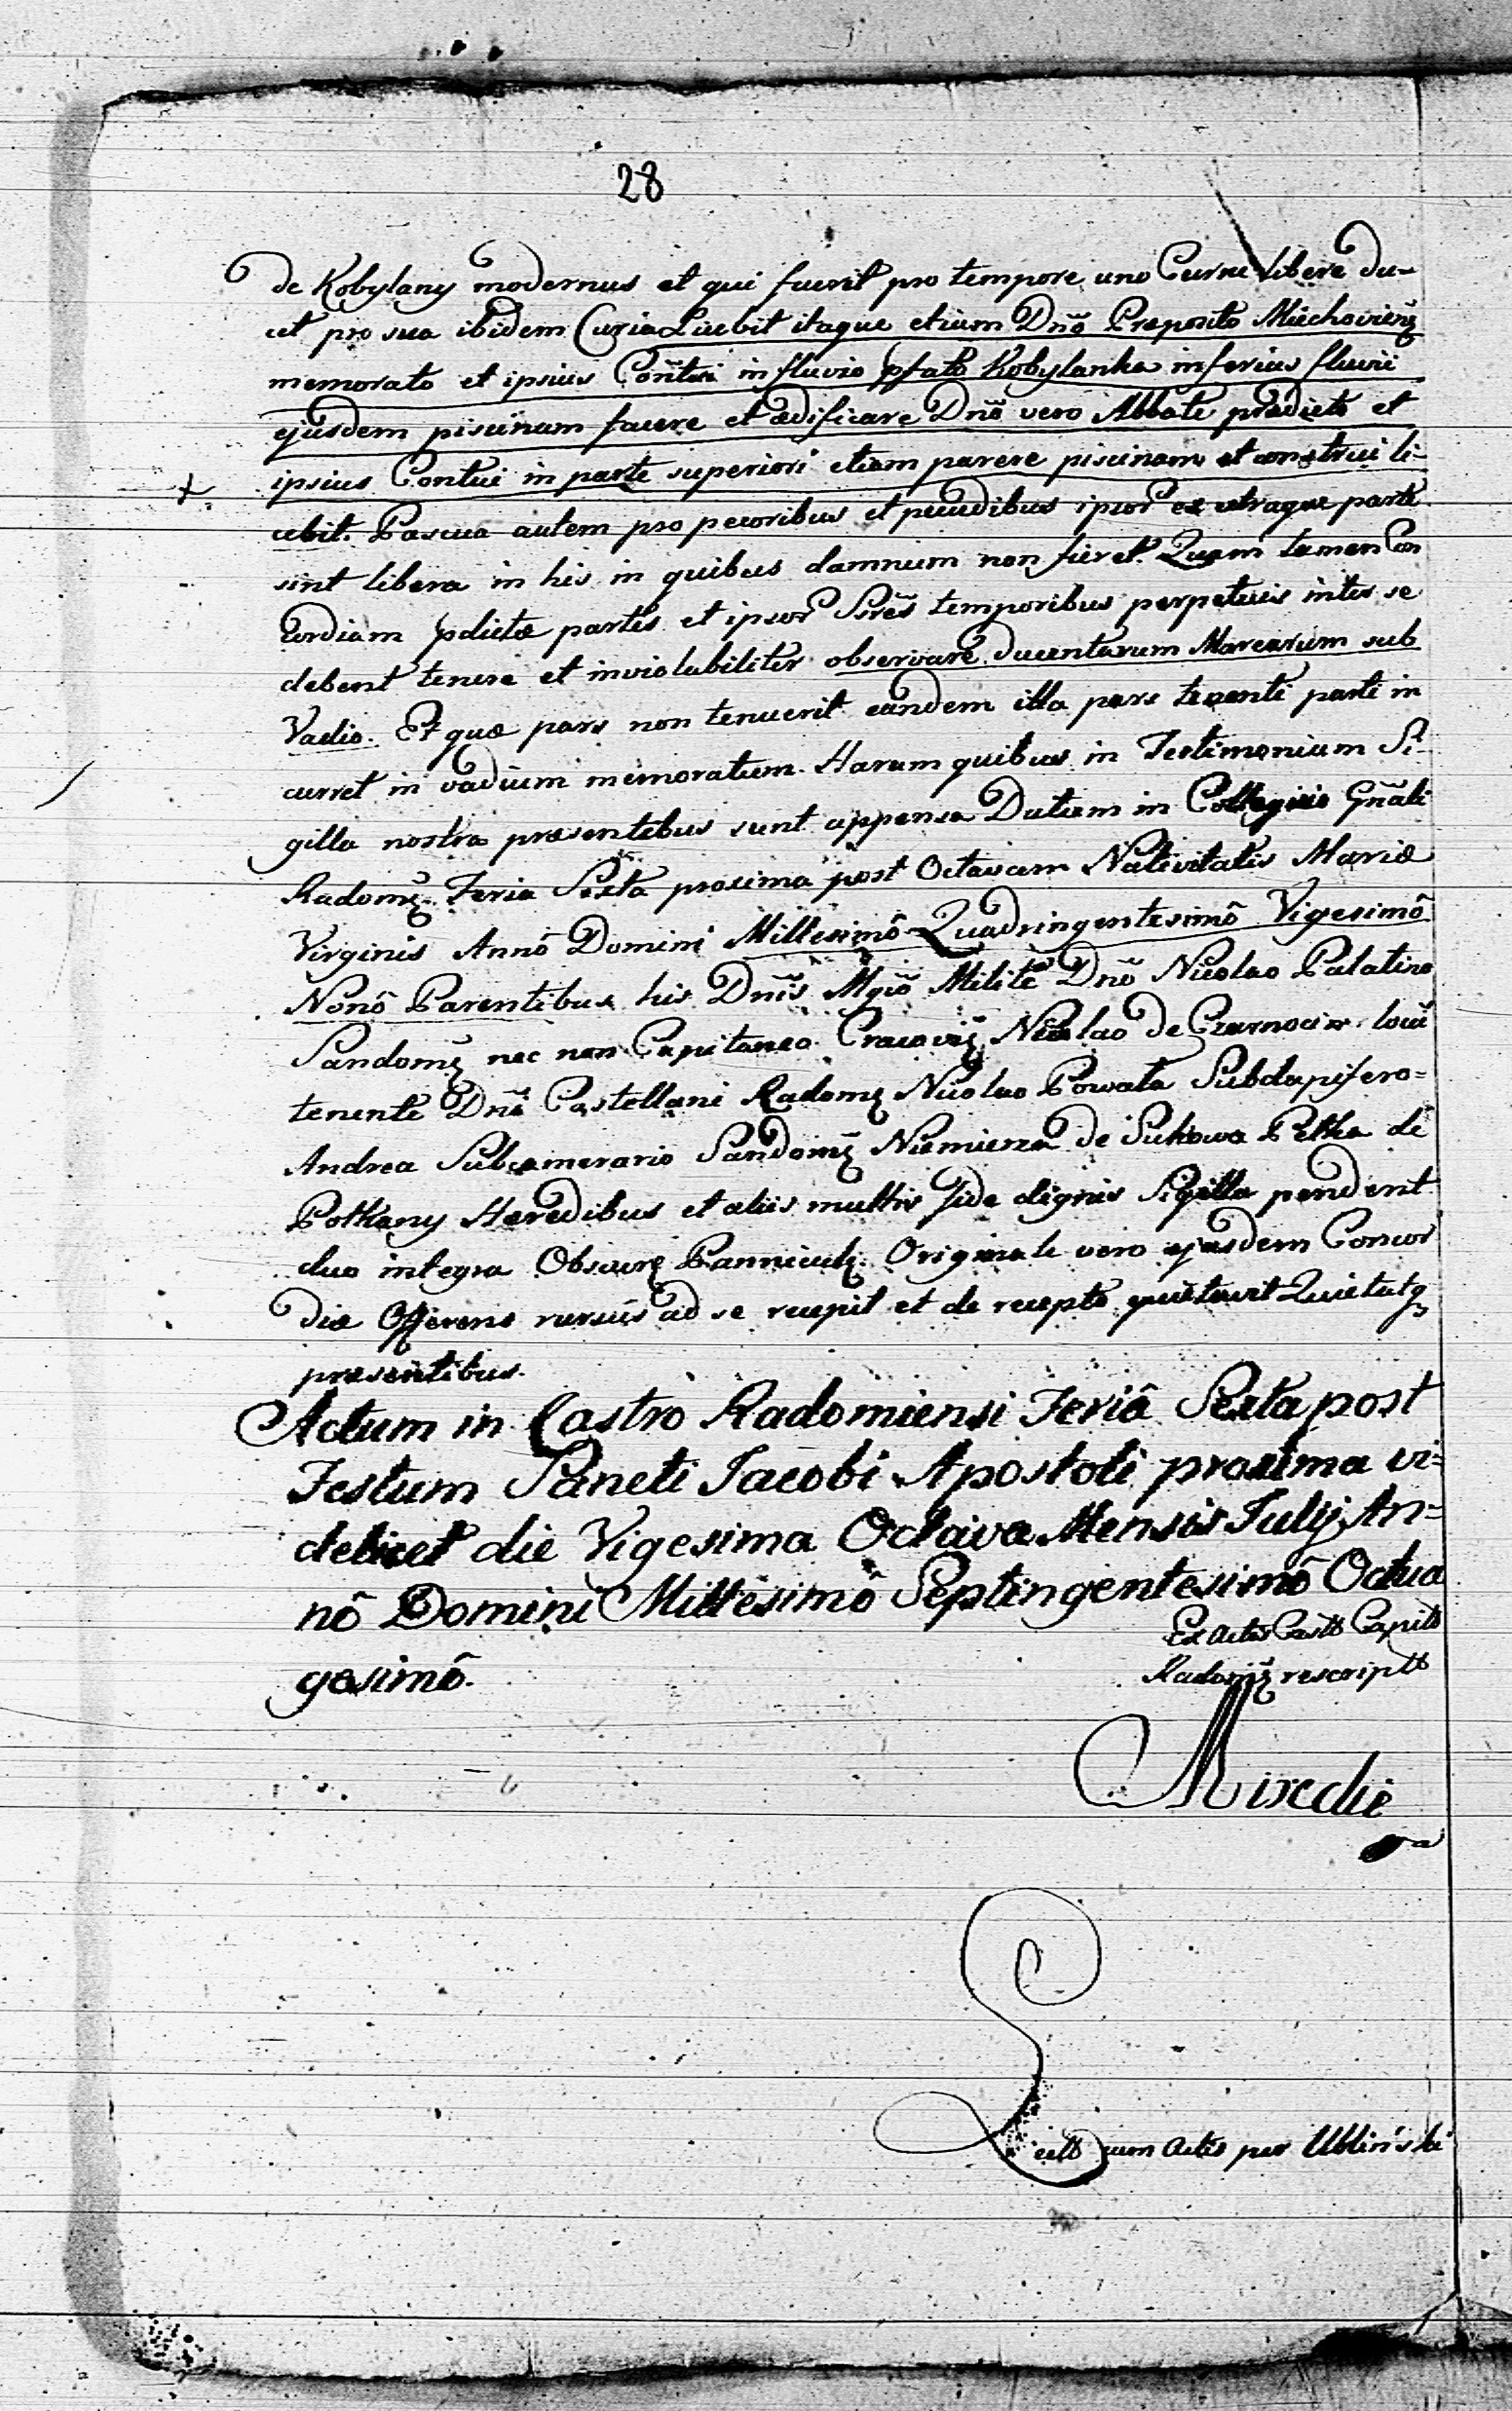 28
de Kobylany modernus et qui fuerit pro tempore uno Curru libere du-
cet pro sua ibidem Curia Licebit itaque etiam Dño Preposito Miechovień
memorato et ipsius Conñtui in fluvio pfato Kobylanka inferius fluvii
ejusdem piscinam facere et ædificare Dño vero Abbate prædicto et
ipsius Contui in parte superiori etiam parere piscinam et construi li-
cebit. Pascua autem pro pecoribus et pecudibus ipsor ex utraque parte
sint libera in his in quibus damnum non fieret. Quam tamen Con
cordiam pdictæ partes et ipsor Sires temporibus perpetuis inter se
debent tenere et inviolabiliter observare ducentarum Marcarum sub
Vadio. Et quæ pars non tenuerit eandem illa pars tenenti parti in
curret in vadium memoratum. Harum quibus in Testimonium Si-
gilla nostra præsentibus sunt appensa Datum in Collegiis Gñali
Radom. Feria Sexta proxima post Octavam Nativitatis Mariæ
Virginis Annô Domini Millesimô Quadringentesimô Vigesimô
Nonô Parentibus his Dnis Mgco Milite Dño Nicolao Palatino
Sandom nec non Capitaneo Cracovien Nicolao de Czarnocin locu
tenente Dni Castellani Radom Nicolao Powała Subdapifero-
Andrea Subcamerario Sandom Niemierza de Sukowa Pełka de
Potkany Heredibus et aliis multis fide dignis Sigilla pendent
duo integra Obscure Panniculi. Originale vero ejusdem Concor
diæ Offerens rursus ad se recepit et de recepto quietavit Quietatq
præsentibus.
Actum in Castro Radomiensi Feriâ Sexta post
Festum Sancti Jacobi Apostoli proxima vi=
delicet die Vigesima Octava Mensis Julij An=
nô Domini Millesimô Septingentesimô Octua
gesimô.
Ex Actis Castr Capit
Radomien rescript
Lect cum Actis per Ubliński